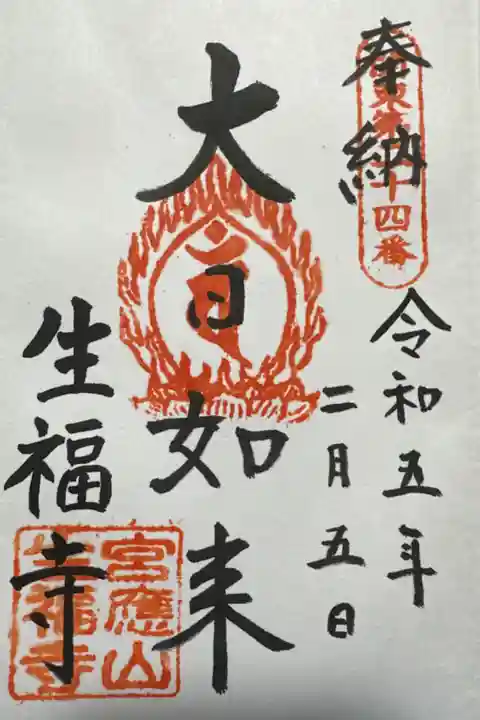 奉納
令和五年
二月五日
大日如来
生福寺
宝應山
生福寺